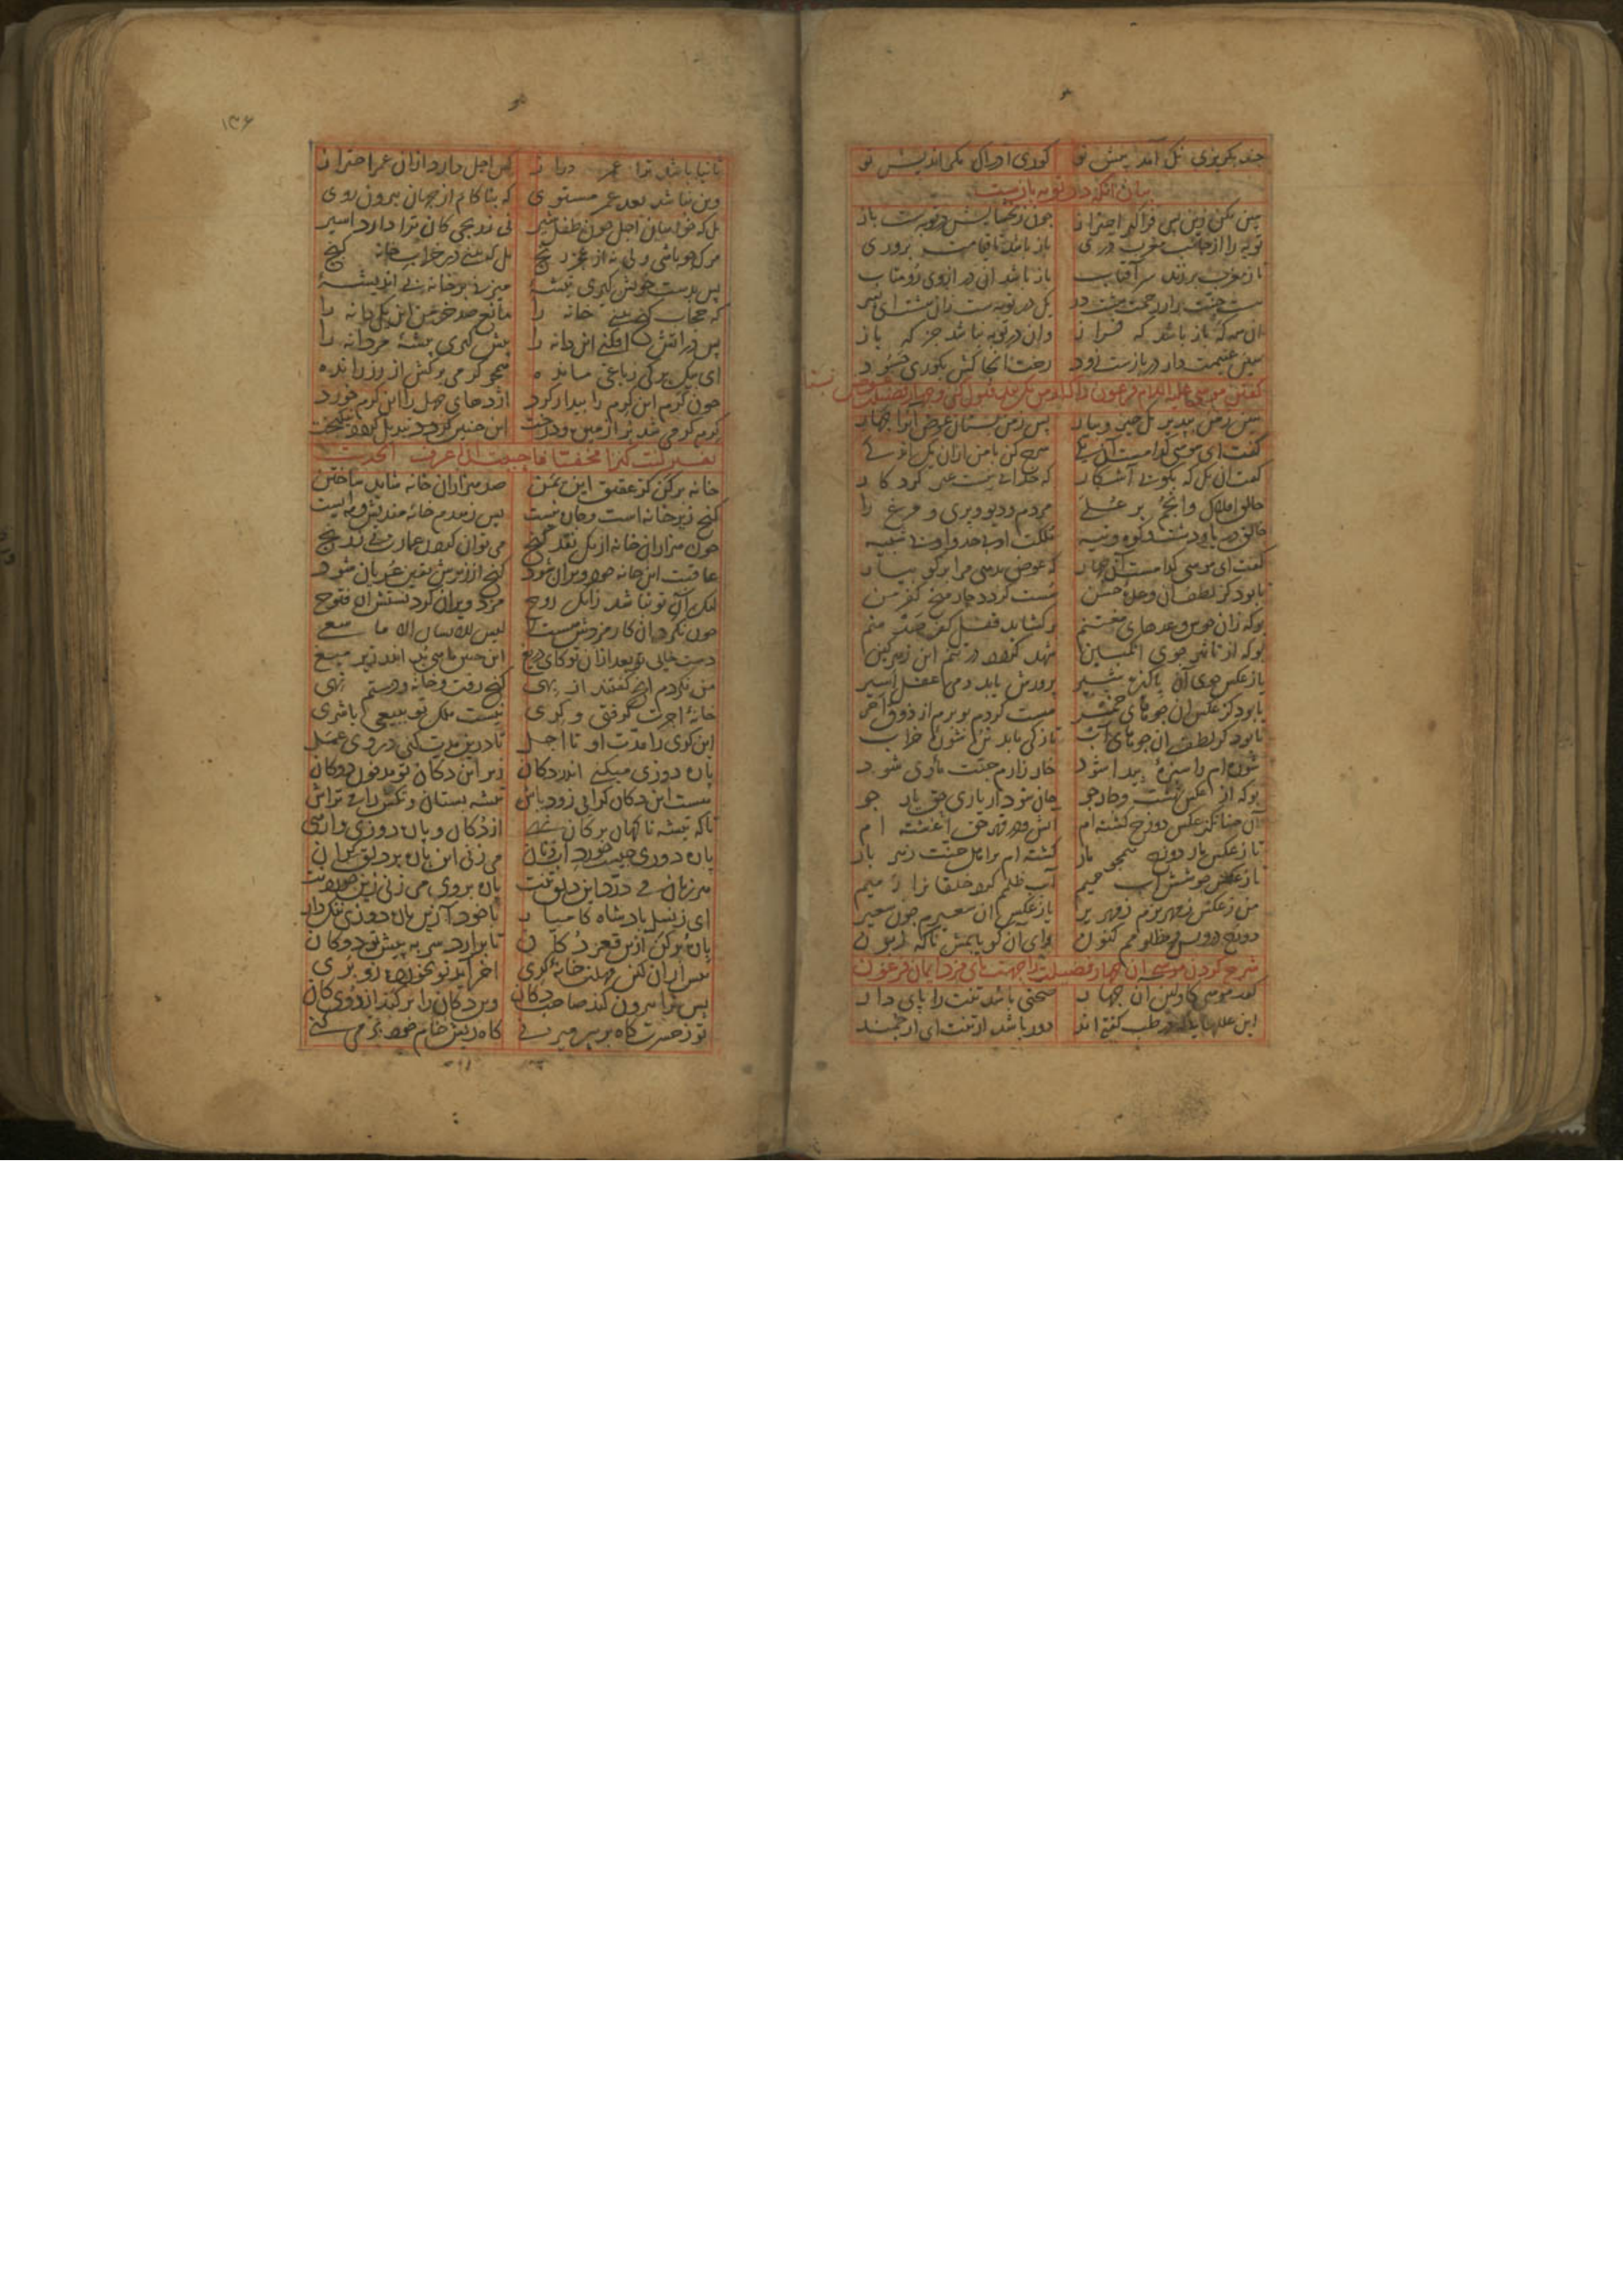 چند بگریزی نک آمد پیش تو کوری ادراک مکراندیش تو
بیان آنکه در توبه بازست
هین مکن زین پس فراگیر احتراز چون ز بخشایش در توبه‌ست باز
توبه را از جانب مغرب دری باز باشد تا قیامت بر وری
تا ز مغرب بر زند سر آفتاب باز باشد آن در از وی رو متاب
هست جنت را ز رحمت هشت در یک در توبه‌ست زان هشت ای پسر
آن همه گه باز باشد گه فراز وان در توبه نباشد جز که باز
هین غنیمت دار در بازست زود رخت آنجا کش بکوری حسود
گفتن موسی علیه السلام فرعون را که از من یک پند قبول کن و چهار فضیلت عوض بستان
هین ز من بپذیر یک چیز و بیار پس ز من بستان عوض آنرا چهار
گفت ای موسی کدامست آن یکی شرح کن با من از آن یک اندکی
گفت آن یک که بگویی آشکار که خدایی نیست غیر کردگار
خالق افلاک و انجم بر علی مردم و دیو و پری و مرغ را
خالق دریا و دشت و کوه و تیه ملکت او بی حد و او بی شبیه
گفت ای موسی کدامست آن چهار که عوض بدهی مرا برگو بیار
تا بود کز لطف آن وعده حسن سست گردد چار میخ کفر من
بوکه زان خوش وعدهای مغتنم برگشاید قفل کفر صد منم
بوکه از تاثیر جوی انگبین شهد گردد در تنم این زهر کین
یا ز عکس جوی آن پاکیزه شیر پرورش یابد دمی عقل اسیر
یا بود کز عکس آن جوهای خمر مست گردم بو برم از ذوق امر
یا بود کز لطف آن جوهای آب تازگی یابد تن شوره خراب
شوره‌ام را سبزه پیدا شود خار زارم جنت ماوی شود
بوکه از عکس بهشت و چار جو جان شود از یاری حق یار جو
آن چنانکه از عکس دوزخ گشته‌ام آتش و در قهر حق آغشته ام
تا ز عکس مار دوزخ همچو مار گشته ام بر اهل جنت زهر بار
تا ز عکس جوشش آب حمیم آب ظلمم کرد خلقانرا رمیم
من ز عکس زمهریرم زمهریر یا ز عکس آن سعیرم چون سعیر
دوزخ درویش و مظلومم کنون وای آن کو یابمش ناگه زبون
شرح کردن موسی آن چهار فضیلت را جهت پای مزد ایمان فرعون
گفت موسی کاولین آن چهار صحتی باشد تنت را پای دار
این علل‌هایی که در طب گفته اند دور باشد از تنت ای ارجمند
۱۳۶
ثانیا باشد ترا عمر دراز که اجل دارد از آن عمر احتراز
وین نباشد بعد عمر مستوی که بناکام از جهان بیرون روی
بل که خواهان اجل چون طفل شیر نی ز رنجی کان ترا دارد اسیر
مرگ جو باشی ولی نه از عجز رنج بل که بینی در خراب خانه گنج
پس بدست خویش گیری تیشه میزنی بر خانه بی اندیشه
که حجاب گنج بینی خانه را مانع صد خرمن این یک دانه را
پس در آتش افکنی این دانه را پیش گیری پیشه مردانه را
ای بیک برگی ز باغی مانده همچو کرمی برگش از رز رانده
چون کرم این کرم را بیدار کرد اژدهای جهل را این کرم خورد
کرم کرمی شد پر از میوه و درخت این چنین گردد تبدیل کرده نیکبخت
تفسیر کنت کنزا مخفیا فاحببت ان اعرف الحدیث
خانه برکن کز عقیق این یمن صد هزاران خانه شاید ساختن
گنج زیر خانه است و چاره نیست پس ز هدم خانه مندیش و مه‌ایست
چون هزاران خانه از یک نقد گنج می‌توان کردن عمارت بی ز رنج
عاقبت این خانه خود ویران شود گنج از زیرش یقین عریان شود
لیک آن تو نباشد زانک روح مزد ویران کردنستش آن فتوح
چون نکرد آن کار مزدش هست لا لیس للانسان الا ما سعی
دست خایی تو بعد از آن تو کای دریغ این چنین ماهی بد اندر زیر میغ
من نکردم آنچ گفتند از بهی گنج رفت و خانه و دستم تهی
خانه اجرت گرفتی و کری نیست ملک تو ببیعی یا شری
این کری را مدت او تا اجل تا درین مدت کنی در وی عمل
پاره دوزی میکنی اندر دکان زیر این دکان تو مدفون دو کان
هست این دکان کرایی زود باش تیشه بستان و تکش را می تراش
تا که تیشه ناگهان بر کان نهی از دکان و پاره دوزی وارهی
پاره دوزی چیست خورد آب و نان می زنی این پاره بر دلق گران
هر زمان می درد این دلق تنت پاره بر وی می زنی زین خوردنت
ای ز نسل پادشاه کامیار با خود آ زین پاره دوزی ننگ دار
پاره برکن ازین قعر دکان تا برآرد سر به پیش تو دو کان
پیش از آن کین مهلت خانه کری آخر آید تو نخورده زو بری
پس ترا بیرون کند صاحب دکان وین دکان را برکند از روی کان
تو ز حسرت گاه بر سر می زنی گاه ریش خام خود بر می کنی